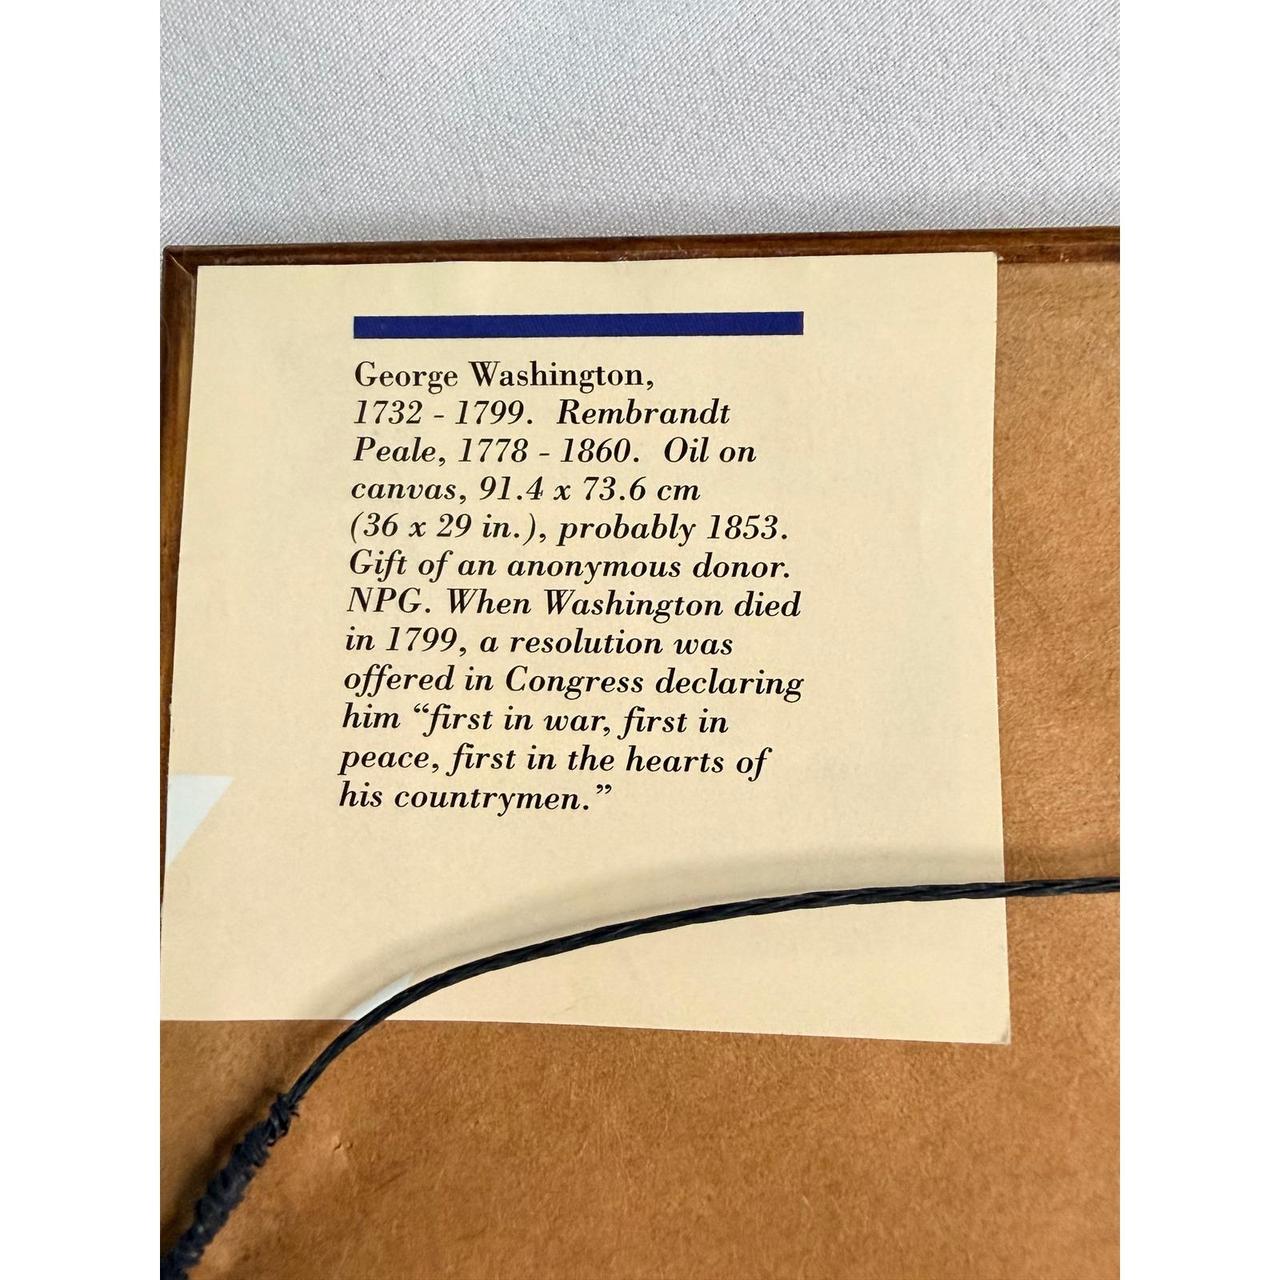 George Washington,
1732 - 1799. Rembrandt
Peale, 1778 - 1860. Oil on
canvas, 91.4 x 73.6 cm
(36 x 29 in.), probably 1853.
Gift of an anonymous donor.
NPG. When Washington died
in 1799, a resolution was
offered in Congress declaring
him “first in war, first in
peace, first in the hearts of
his countrymen.”